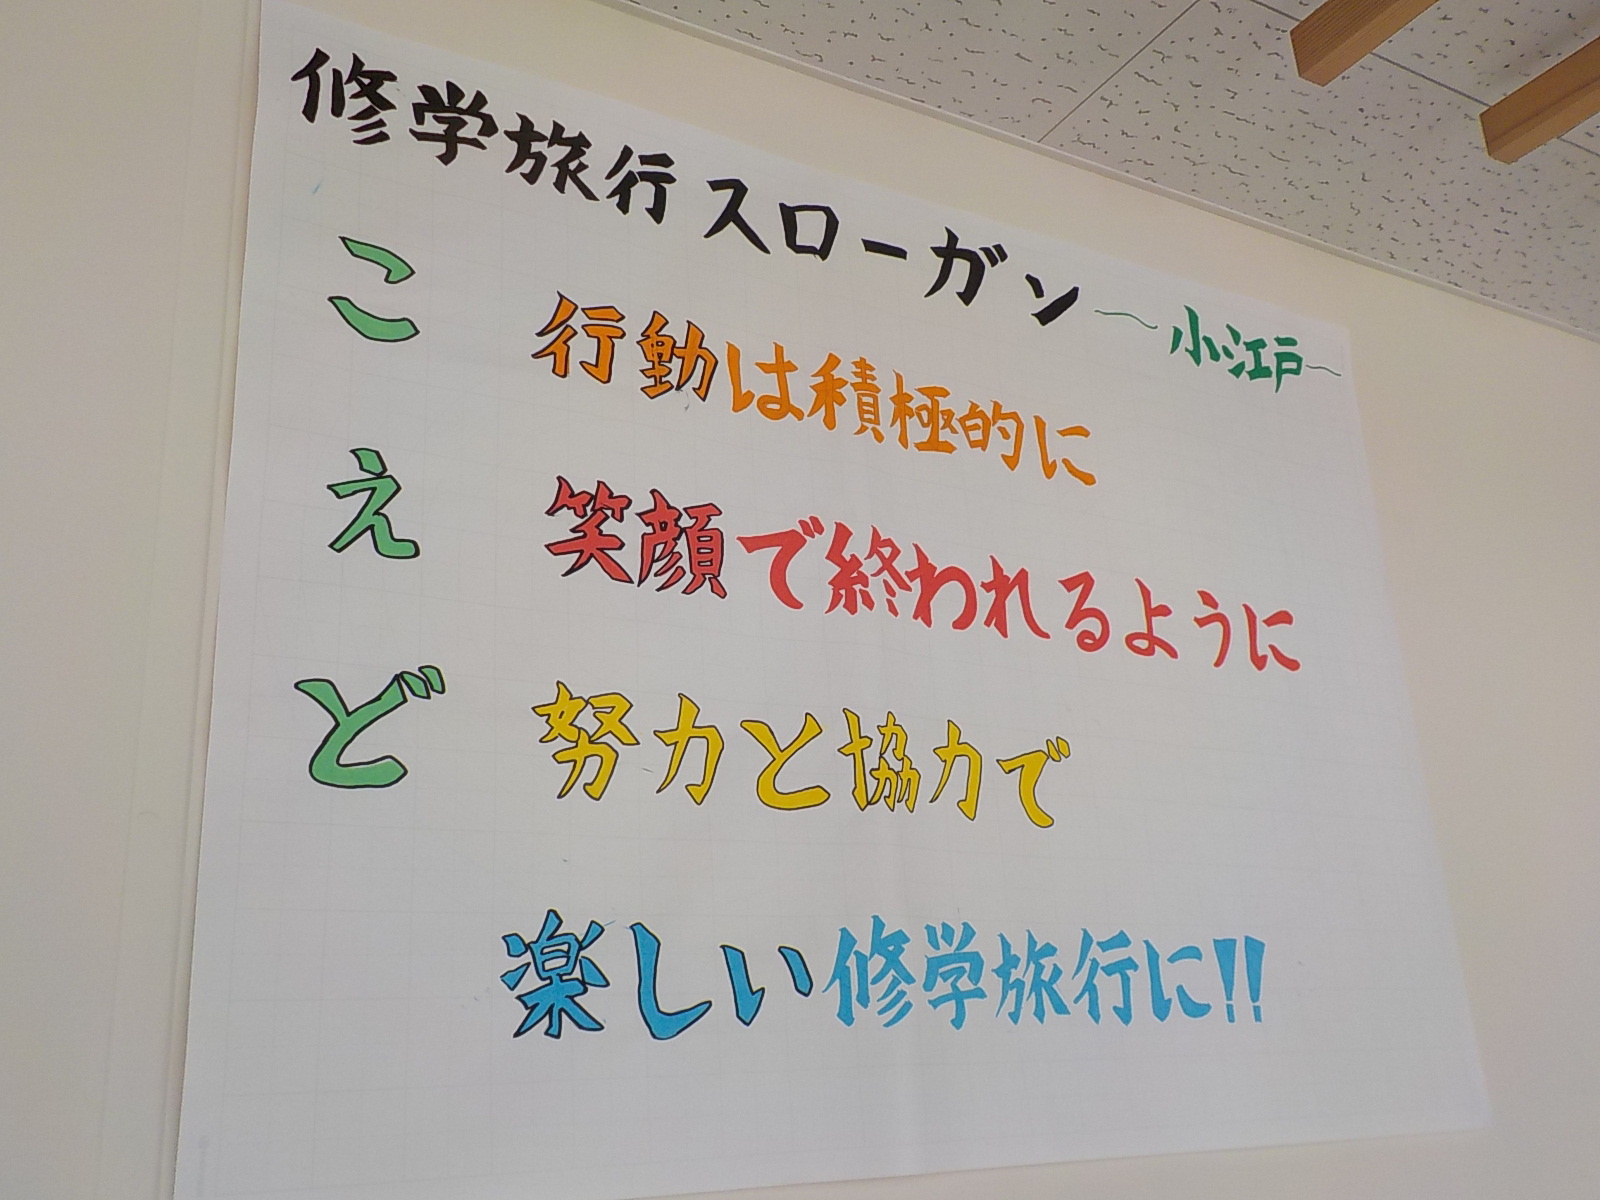 修学旅行スローガン〜小江戸〜
こ 行動は積極的に
え 笑顔で終われるように
ど 努力と協力で
楽しい修学旅行に!!